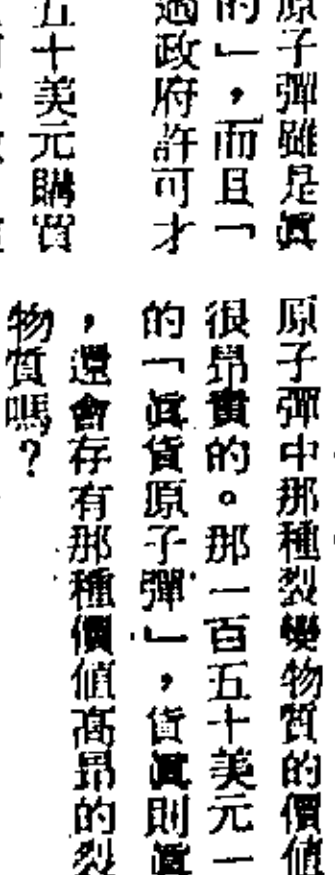 原子彈雖是眞
的」，而且「
過政府許可才
五十美元購買
原子彈中那種裂變物質的價值
很昻貴的。那一百五十美元一
的「眞貨原子彈」，貨眞則眞
，還會存有那種價值高昻的裂
物質嗎？